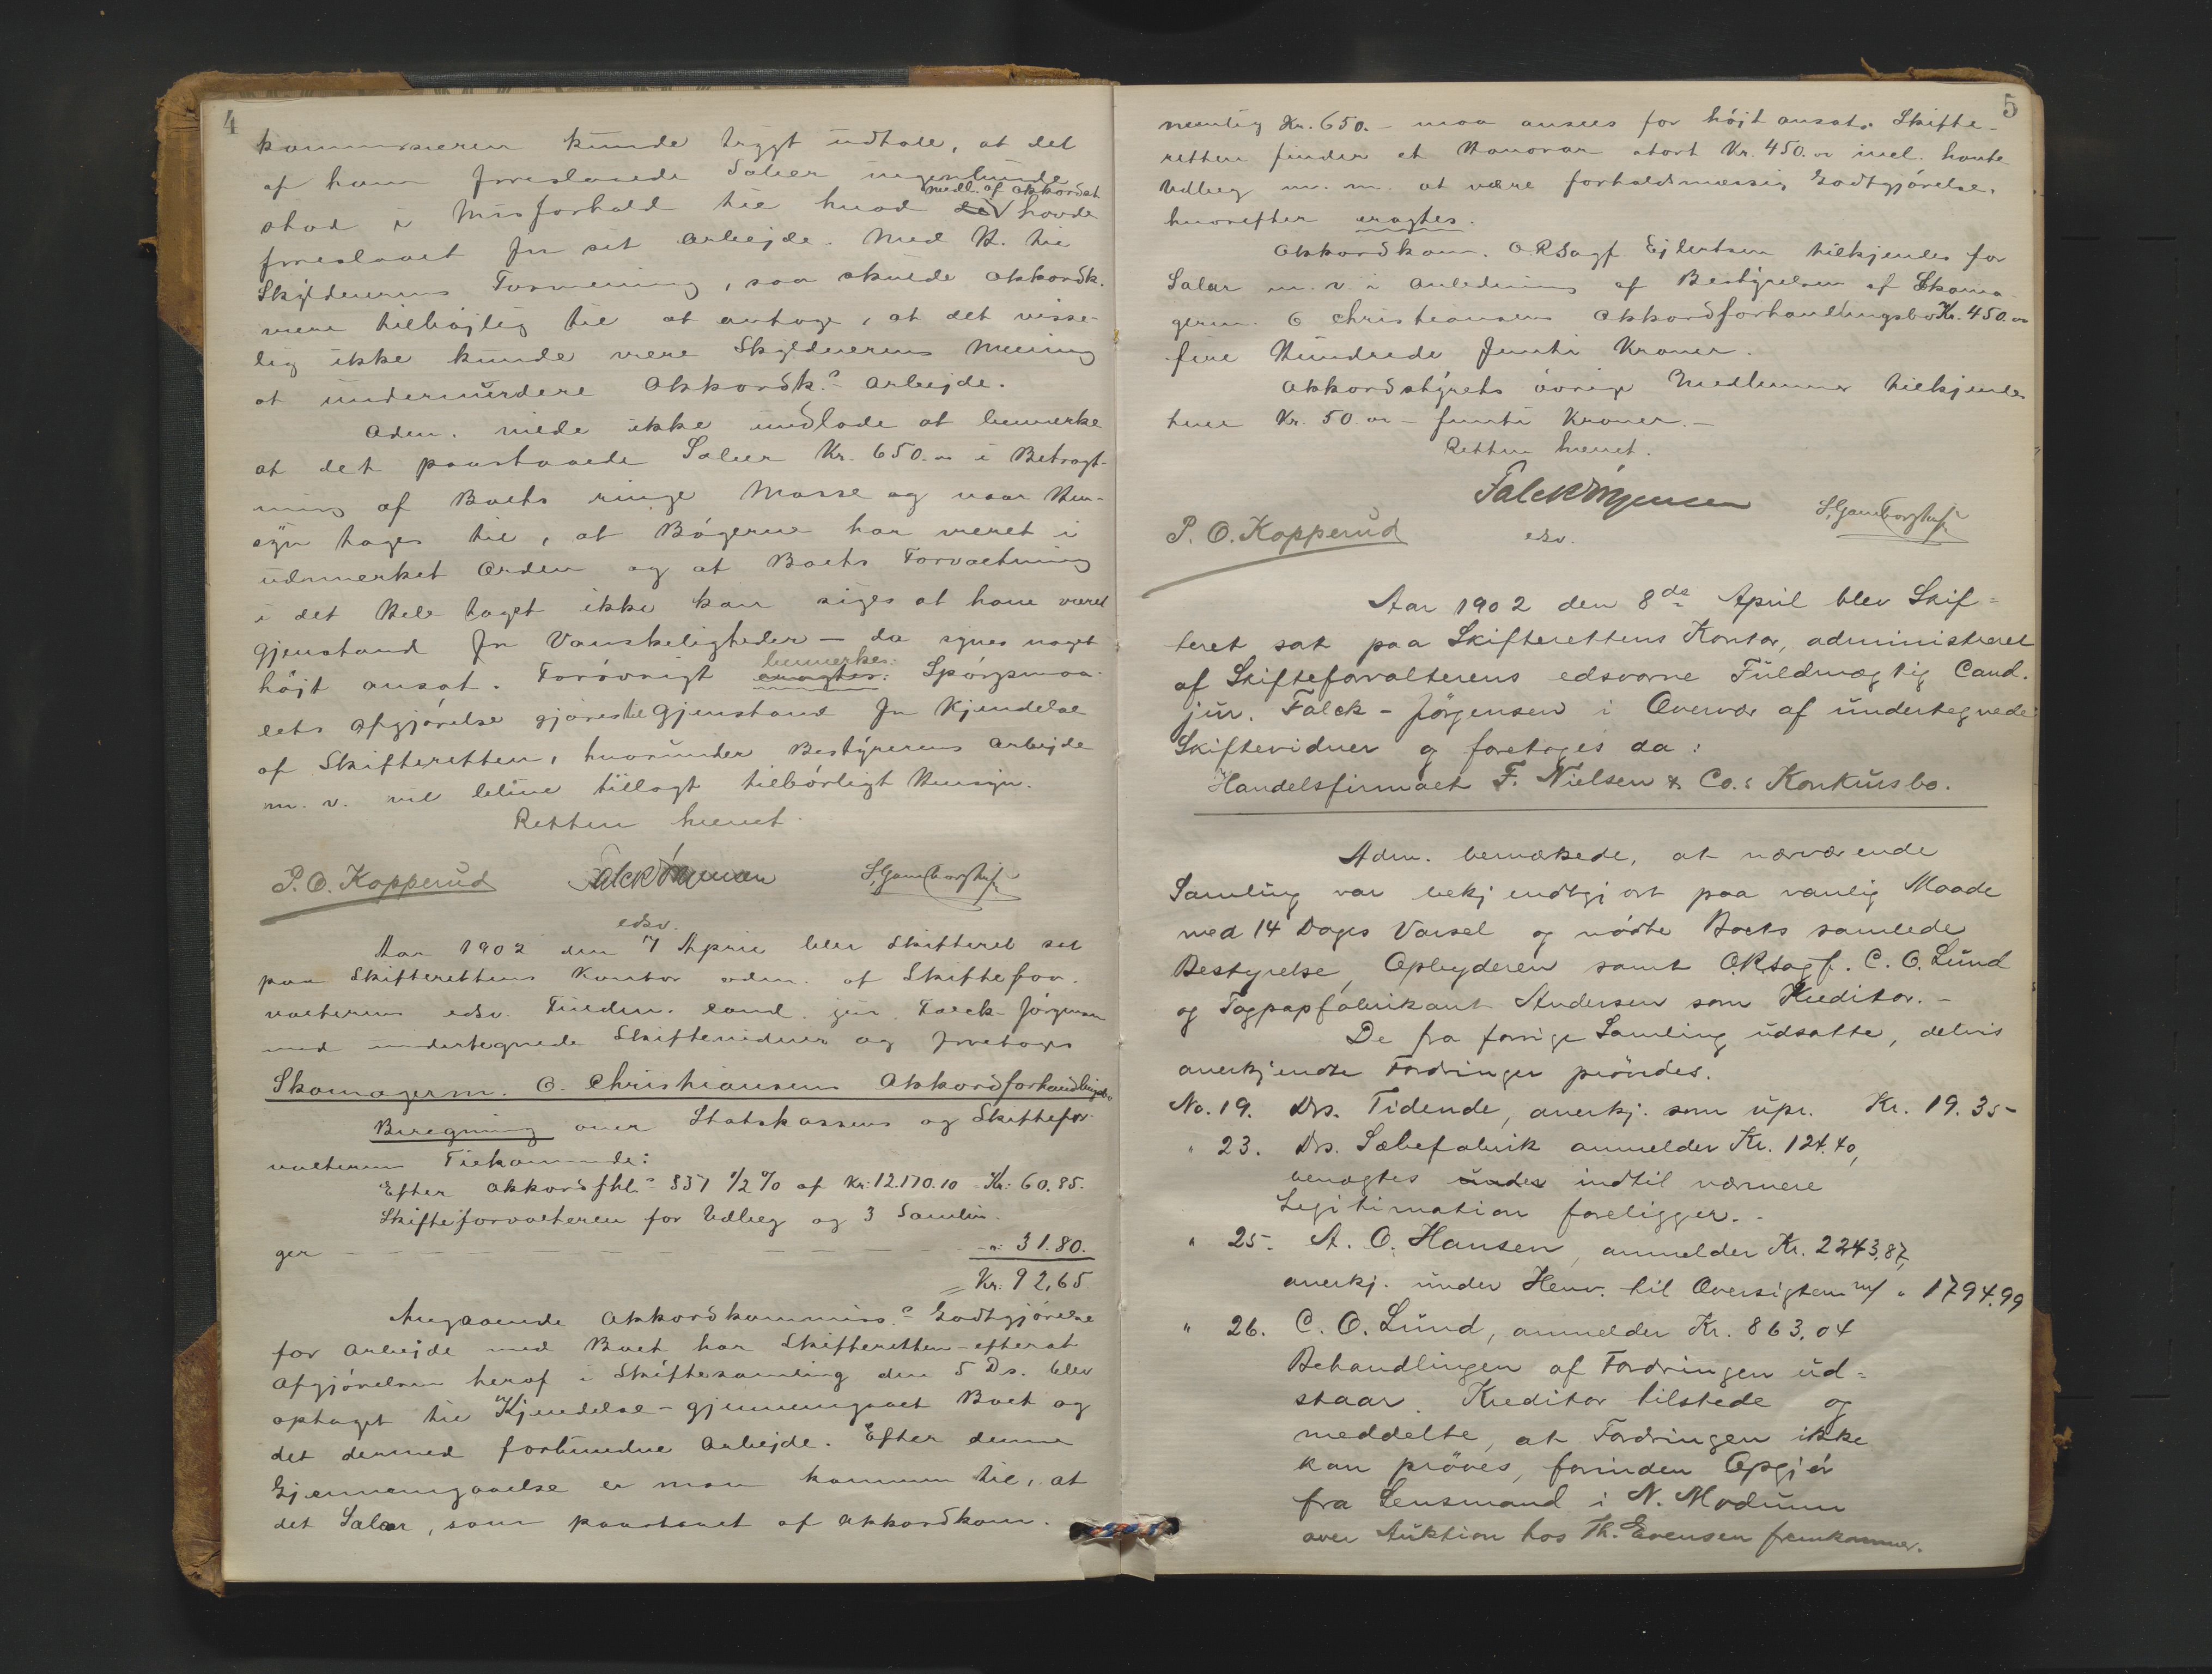 4
kommissæren kunde trygt udtale, at det
af ham foreslaaede Salær ingenlunde
medl. af akkordst.
stod i Misforhold til hvad de havde
foreslaaet for sit Arbejde. Med H. til
Skyldnerens Formening, saa skulde Akkordk.
være tilbøjlig til at antage, at det visse-
lig ikke kunde være Skyldnerens Mening
at undervurdere Akkordk.s Arbejde.
Adm. vilde ikke undlade at bemerke
at det paastaaede Salær Kr. 650.00 i Betragt-
ning af Boets ringe Masse og naar Hen-
syn tages til, at Bøgerne har været i
udmerket Orden og at Boets Forvaltning
i det Hele taget ikke kan siges at have været
Gjenstand for Vanskeligheder – da synes noget
bemerkes:
højt ansat. Forøvrigt eragtes: Spørgsmaa-
lets Afgjørelse gjøres til Gjenstand for Kjendelse
af Skifteretten, hvorunder Bestyrerens Arbejde
m. v. vil blive tillagt tilbørligt Hensyn.
Retten hævet.
P. O. Kopperud Falck Jørgensen
edsv.
Aar 1902 den 7 April blev Skifteret sat
paa Skifterettens Kontor adm. af Skiftefor-
valterens edsv. Fuldm. cand. jur. Falck-Jørgensen
med undertegnede Skiftevidner og foretoges
Skomagerm. O. Christiansens Akkordforhandlingsbo
Beregning over Statskassens og Skiftefor-
valterens Tilkommende:
Efter Akkordfhl.s § 51 1/2 % af Kr: 12.170.10 Kr: 60.85.
Skifteforvalteren for Udlæg og 3 Samlin-
ger — — — — — — - " - 31.80.
= Kr. 92,65
Angaaende Akkordkommiss.s Godtgjørelse
for Arbejde med Boet har Skifteretten – efterat
Afgjørelsen heraf i Skiftesamling den 5 Ds. blev
optaget til Kjendelse – gjennemgaaet Boet og
det dermed forbundne Arbejde. Efter denne
Gjennemgaaelse er man kommen til, at
det Salær, som paastaaet af Akkordkom.
5
nemlig Kr. 650. – maa ansees for højt ansat. Skifte-
retten finder et Honorar stort Kr. 450.00 incl. havte
Udlæg m. m. at være forholdsmæssig Godtgjørelse,
hvorefter eragtes.
Akkordkom. ORSagf. Ejlertsen tilkjendes for
Salær m. v. i Anledning af Bestyrelsen af Skoma-
germ. O Christiansens Akkordforhandlingsbo Kr. 450.00
fire Hundrede femti Kroner.
Akkordstyrets øvrige Medlemmer tilkjendes
hver Kr. 50.00 – femti Kroner. –
Retten hævet.
Falck Jørgensen
P. O. Kopperud edsv.
Aar 1902 den 8de April blev Skif=
teret sat paa Skifterettens Kontor, administreret
af Skifteforvalterens edsvorne Fuldmægtig Cand.
jur. Falck-Jørgensen i Overvær af undertegnede
Skiftevidner og foretoges da:
Handelsfirmaet F. Nielsen & Co.s Konkursbo.
Adm. bemærkede, at nærværende
Samling var bekjendtgjort paa vanlig Maade
med 14 Dages Varsel og mødte Boets samlede
Bestyrelse, Opbyderen samt O.RSagf. C. O. Lund
og Tagpapfabrikant Andersen som Kreditor. –
De fra forrige Samling udsatte, delvis
anerkjendte Fordringer prøvdes.
No. 19. Drs. Tidende, anerkj. som upr. Kr. 19.35
" 23. Drs. Sæbefabrik anmelder Kr. 124.40,
benægtes under indtil nærmere
Legitimation foreligger. -
" 25. A. O. Hansen, anmelder Kr. 2243,87,
anerkj. under Henv. til Oversigten m/ " 1794,99
" 26. C. O. Lund, anmelder Kr. 863,04
Behandlingen af Fordringen ud=
staar. Kreditor tilstede og
meddelte, at Fordringen ikke
kan prøves, forinden Opgjør
fra Lensmand i N. Modum
over Auktion hos Th. Evensen fremkommer.